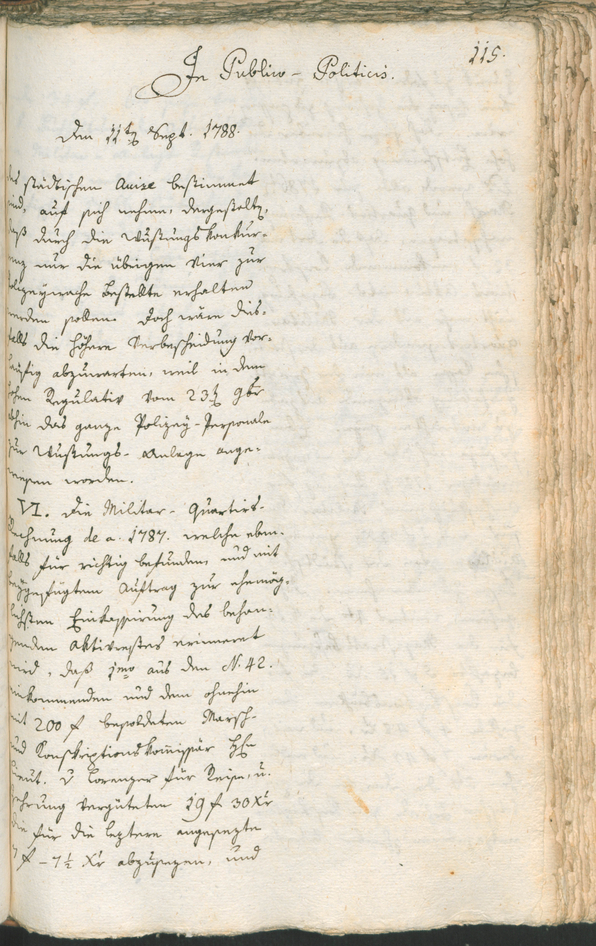 115.
In Publico-Politicis.
Den 11ten Sept. 1788.
des städtischen Avise bestimmet
sind, auf sich nehme, dergestelten,
daß durch die Wustungskonkur-
renz nur die übrigen vier zur
Polizeywache bestellte erhalten
werden sollen. Doch wäre dies-
falls die höhere Verbescheidung vor-
läufig abzuwarten, weil in dem
hohen Regulativ vom 23ten 9br
dahin das ganze Polizey-Personale
zur Wustungs-Anlage ange-
wiesen worden.
VI. Die Militar-Quartirs-
Rechnung de a. 1787. welche eben-
falls für richtig befunden, und mit
beygefügtem Auftrag zur ehemög-
lichsten Einkassirung des behan-
genden Aktivrestes erinneret
wird, daß jmo aus den N. 42.
einkommenden und dem ohnehin
mit 200 f besoldeten Marsch-
und Konskriptionskommissär Hhn
Lieut. v Lorenzer für Reise, u.
Zehrung vergüteten 19 f 30 Xr
die für die leztere angesezte
7 f - 7½ Xr abzusezen, und